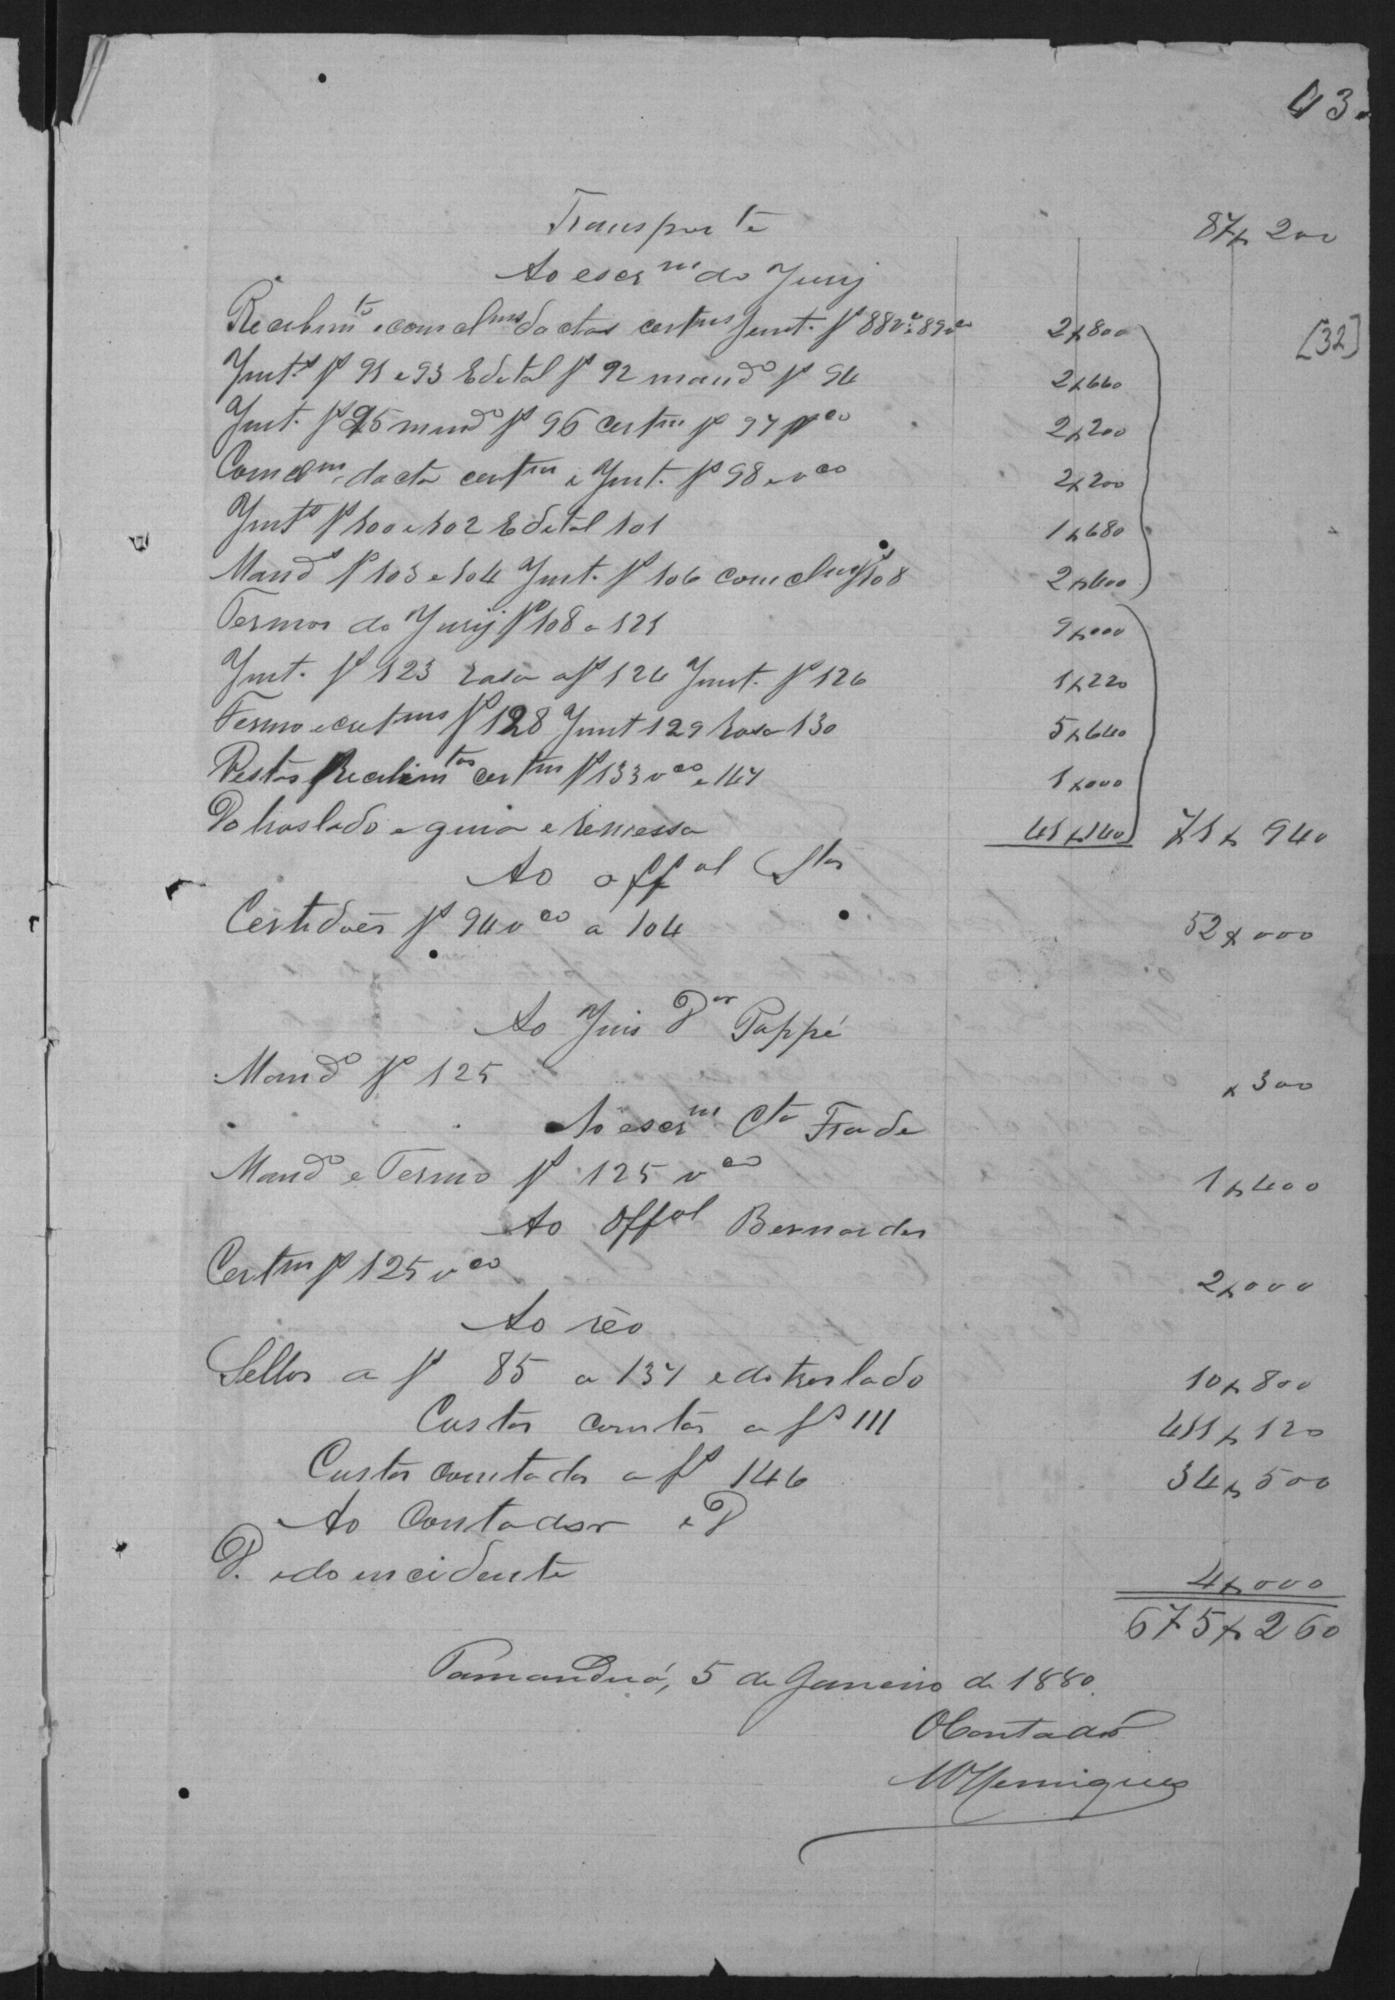 43.
Transporte 87$200
Ao escr.m do Jury
Recebim.to e concl.ms datas cert.ms Junt. f.s 88 v.o e 89 v.o 2$800
[32]
Junt.s f.s 91 e 93 Edital f.s 92 mand.o f.s 94 2$660
Junt. f.s 95 mand.o f.s 96 cert.m f.s 97 v.co 2$200
Concl.m data cert.m e Junt. f.s 98 e v.co 2$200
Junt.s f.s 100 e 102 Edital 101 1$680
Mand.s f.s 103 e 104 Junt. f.s 106 conclus f.s 108 2$400
Termos do Jury f.s 108 a 121 9$000
Junt. f.s 123 rasa a f.s 124 Junt. f.s 126 1$220
Termo e cert.ms f.s 128 Junt 129 rasa 130 5$640
Vistas Recebim.tos cert.m f.s 133 v.co e 147 1$000
Do traslado e guia e remessa 41$140 71$940
Ao off.al
Certidões f.s 94 v.co a 104 52$000
Ao Juis D.or Pappé
Mand.o f.s 125 $300
Ao escr.m C.ta Frade
Mand.o e Termo f.s 125 v.co 1$400
Ao Off.al Bernardes
Cert.m f.s 125 v.co 2$000
Ao réo
Sellos a f.s 85 a 137 e do traslado 10$800
Custas contas a f.s 111 411$120
Custas contadas a f.s 146 34$500
Ao Contador e D
D. e do incidente 4$000
675$260
Tamanduá, 5 de Janeiro de 1880.
O Contador
MHenriques